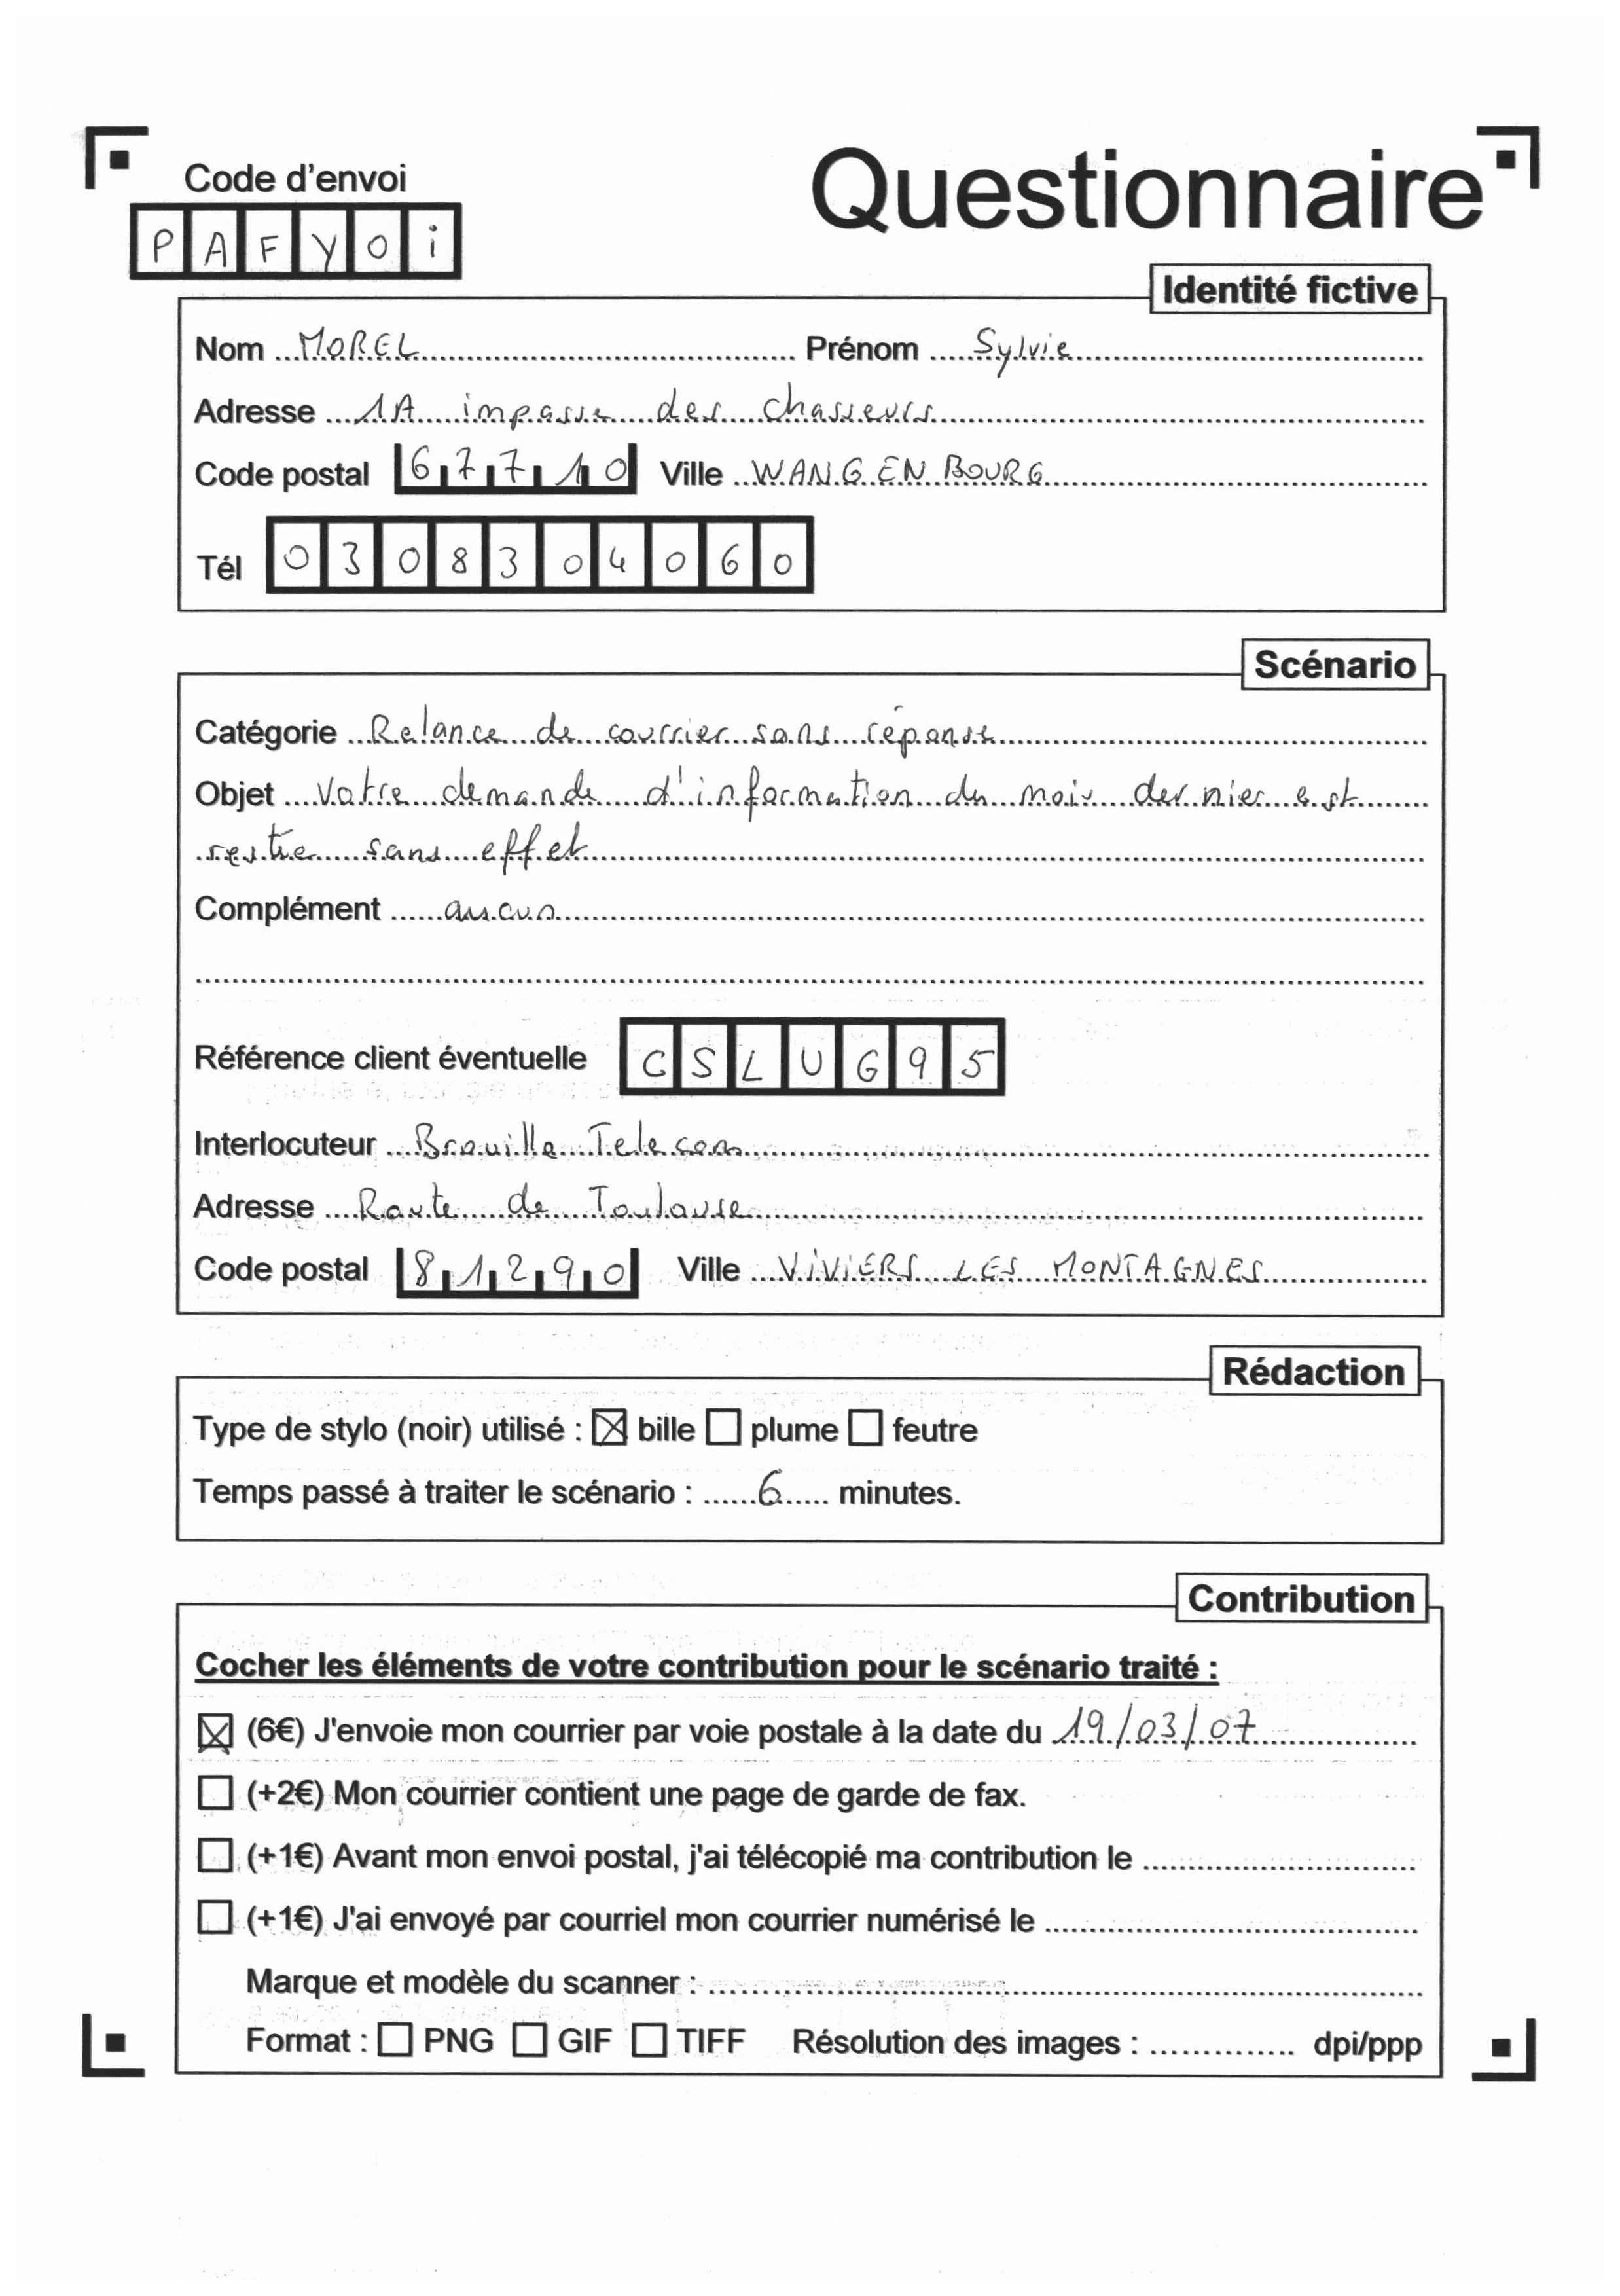 Code d'envoi
Questionnaire
P A F Y O i
Identité fictive
Nom MOREL Prénom Sylvie
Adresse 1A impasse des chasseurs
Code postal 67710 Ville WANGENBOURG
Tél 0308304060
Scénario
Catégorie Relance de courrier sans réponse
Objet Votre demande d'information du mois dernier est
restée sans effet
Complément aucun
Référence client éventuelle CSLUG95
Interlocuteur Brouille Telecom
Adresse Route de Toulouse
Code postal 81290 Ville ViViERS LES MONTAGNES
Rédaction
Type de stylo (noir) utilisé : ☒ bille ☐ plume ☐ feutre
Temps passé à traiter le scénario : 6 minutes.
Contribution
Cocher les éléments de votre contribution pour le scénario traité :
☒ (6€) J'envoie mon courrier par voie postale à la date du 19/03/07
☐ (+2€) Mon courrier contient une page de garde de fax.
☐ (+1€) Avant mon envoi postal, j'ai télécopié ma contribution le
☐ (+1€) J'ai envoyé par courriel mon courrier numérisé le
Marque et modèle du scanner :
Format : ☐ PNG ☐ GIF ☐ TIFF Résolution des images : dpi/ppp